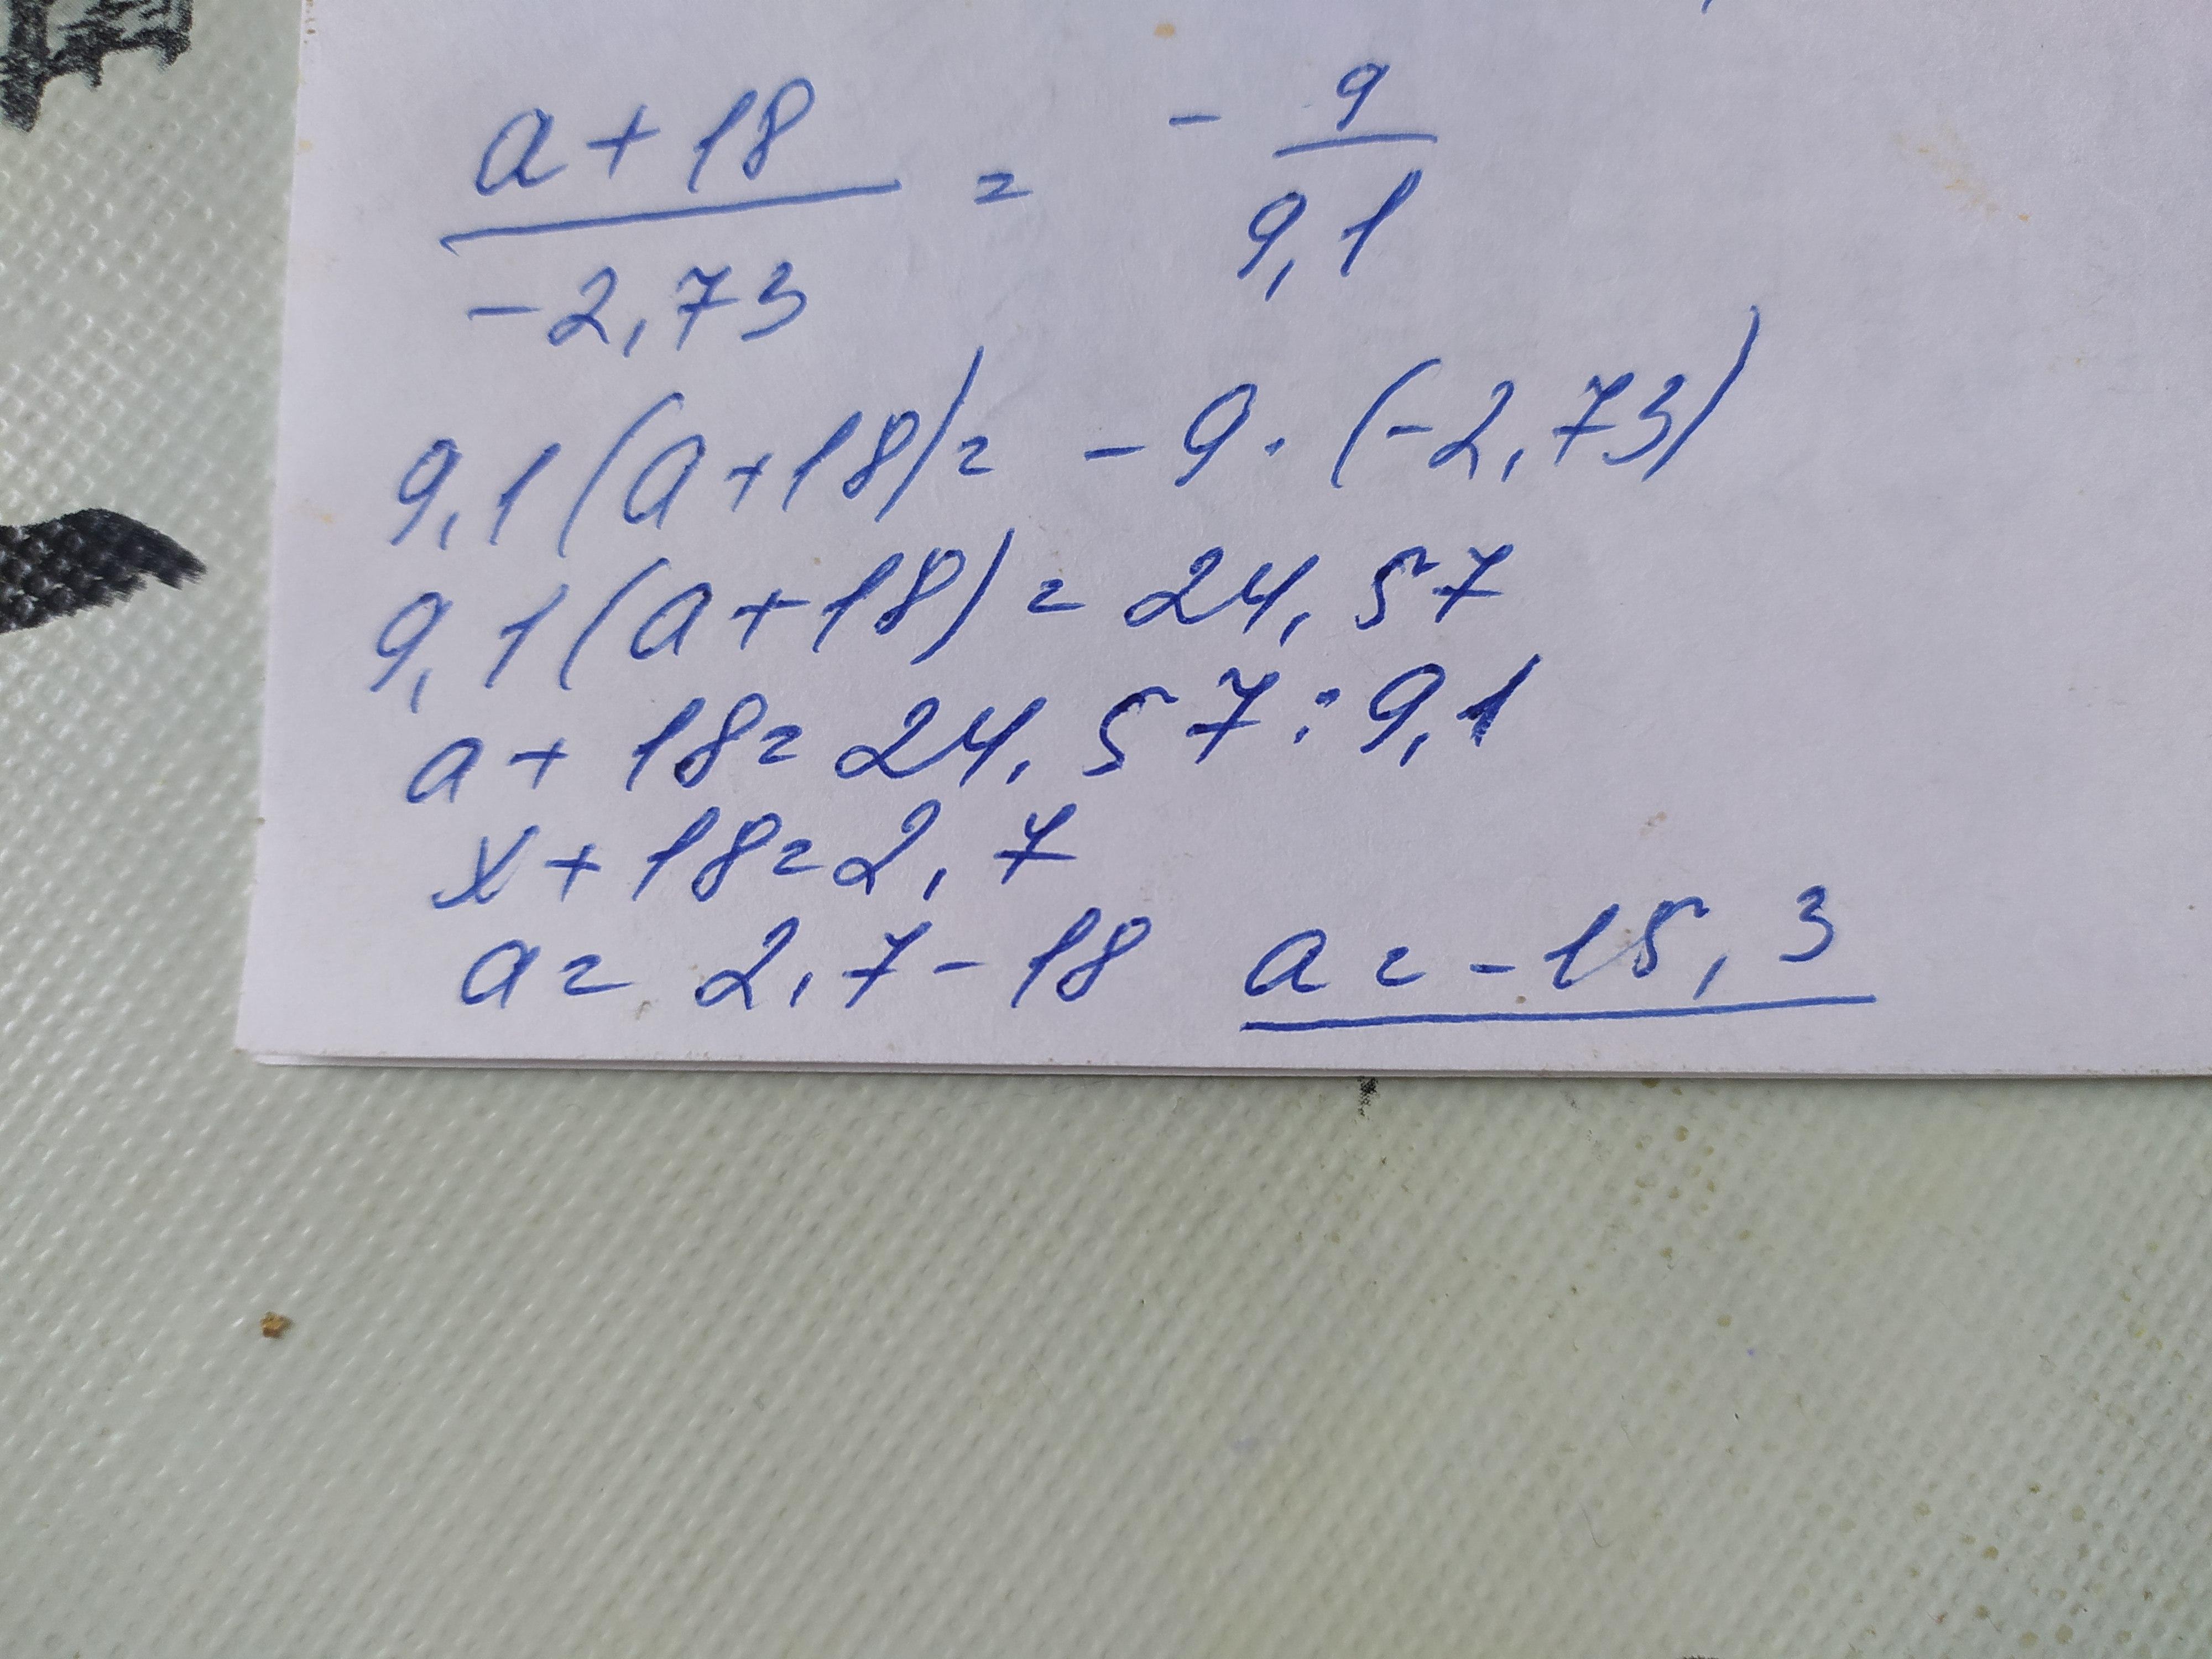 a + 18 / -2,73 = - 9 / 9,1
9,1 (a + 18) = - 9 · (-2,73)
9,1 (a + 18) = 24,57
a + 18 = 24,57 : 9,1
x + 18 = 2,7
a = 2,7 - 18 a = - 15,3